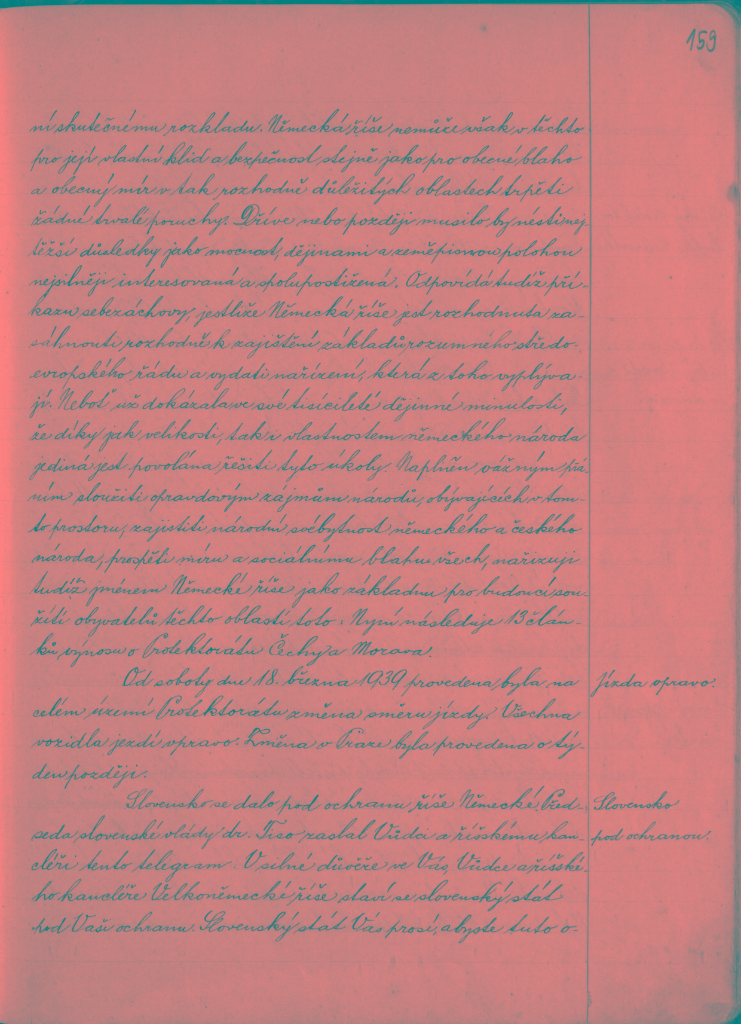 159
ní skutečnému rozkladu. Německá říše nemůže však v těchto
pro její vlastní klid a bezpečnost, stejně jako pro obecné blaho
a obecný mír v tak rozhodně důležitých oblastech trpěti
žádné trvalé poruchy. Dříve nebo později musilo by nésti nej-
těžší důsledky jako mocnost, dějinami a zeměpisnou polohou
nejsilněji interesovaná a spolupostižená. Odpovídá tudíž pří-
kazu sebezáchovy, jestliže Německá říše jest rozhodnuta za-
sáhnouti rozhodně k zajištění základů rozumného středo-
evropského řádu a vydati nařízení, která z toho vyplýva-
jí. Neboť už dokázala ve své tisícileté dějinné minulosti,
že díky jak velikosti, tak i vlastnostem německého národa
jediná jest povolána řešiti tyto úkoly. Naplněn vážným přá-
ním sloužiti opravdovým zájmům národů, obývajících v tom-
to prostoru, zajistiti národní svébytnost německého a českého
národa, prospěti míru a sociálnímu blahu všech, nařizuji
tudíž jménem Německé říše jako základnu pro budoucí sou-
žití obyvatelů těchto oblastí toto: Nyní následuje 13 člán-
ků výnosu o Protektorátu Čechy a Morava.
Od soboty dne 18. března 1939 provedena byla na
Jízda vpravo.
celém území Protektorátu změna směru jízdy. Všechna
vozidla jezdí vpravo. Změna v Praze byla provedena o tý-
den později.
Slovensko se dalo pod ochranu říše Německé. Před-
Slovensko
seda slovenské vlády dr. Tiso zaslal Vůdci a říšskému kan-
pod ochranou.
cléři tento telegram: V silné důvěře ve Vás, Vůdce a říšské-
ho kancléře Velkoněmecké říše staví se slovenský stát
pod Vaši ochranu. Slovenský stát Vás prosí, abyste tuto o-